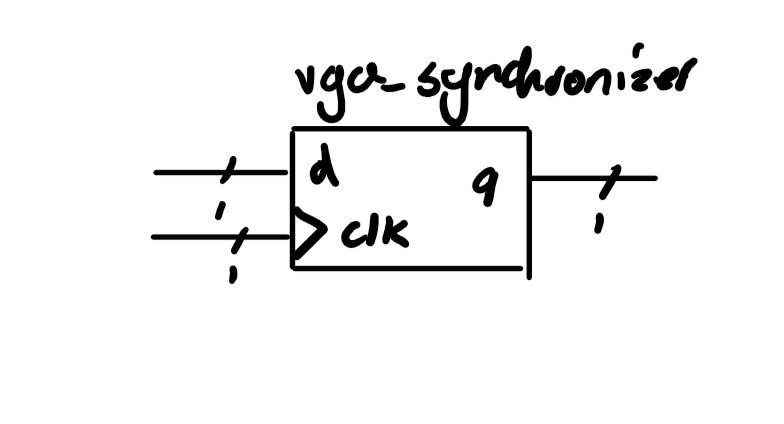 vga_synchronizer
d
q
1
clk
1
1